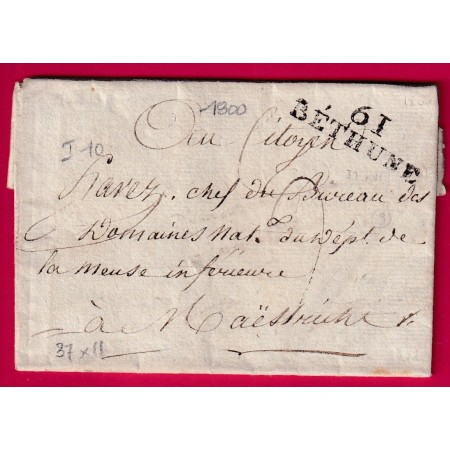 1800
61
BÉTHUNE
Au Citoyen
J 10
Ravez, chef du Bureau des
Domaines Nat.x du Dépt. de
la Meuse inférieure
à Maëstricht
37 x 11